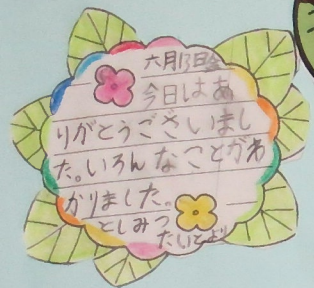 六月13日金
今日はあ
りがとうございまし
た。いろんなことがわ
かりました。
としみつ
たいとより